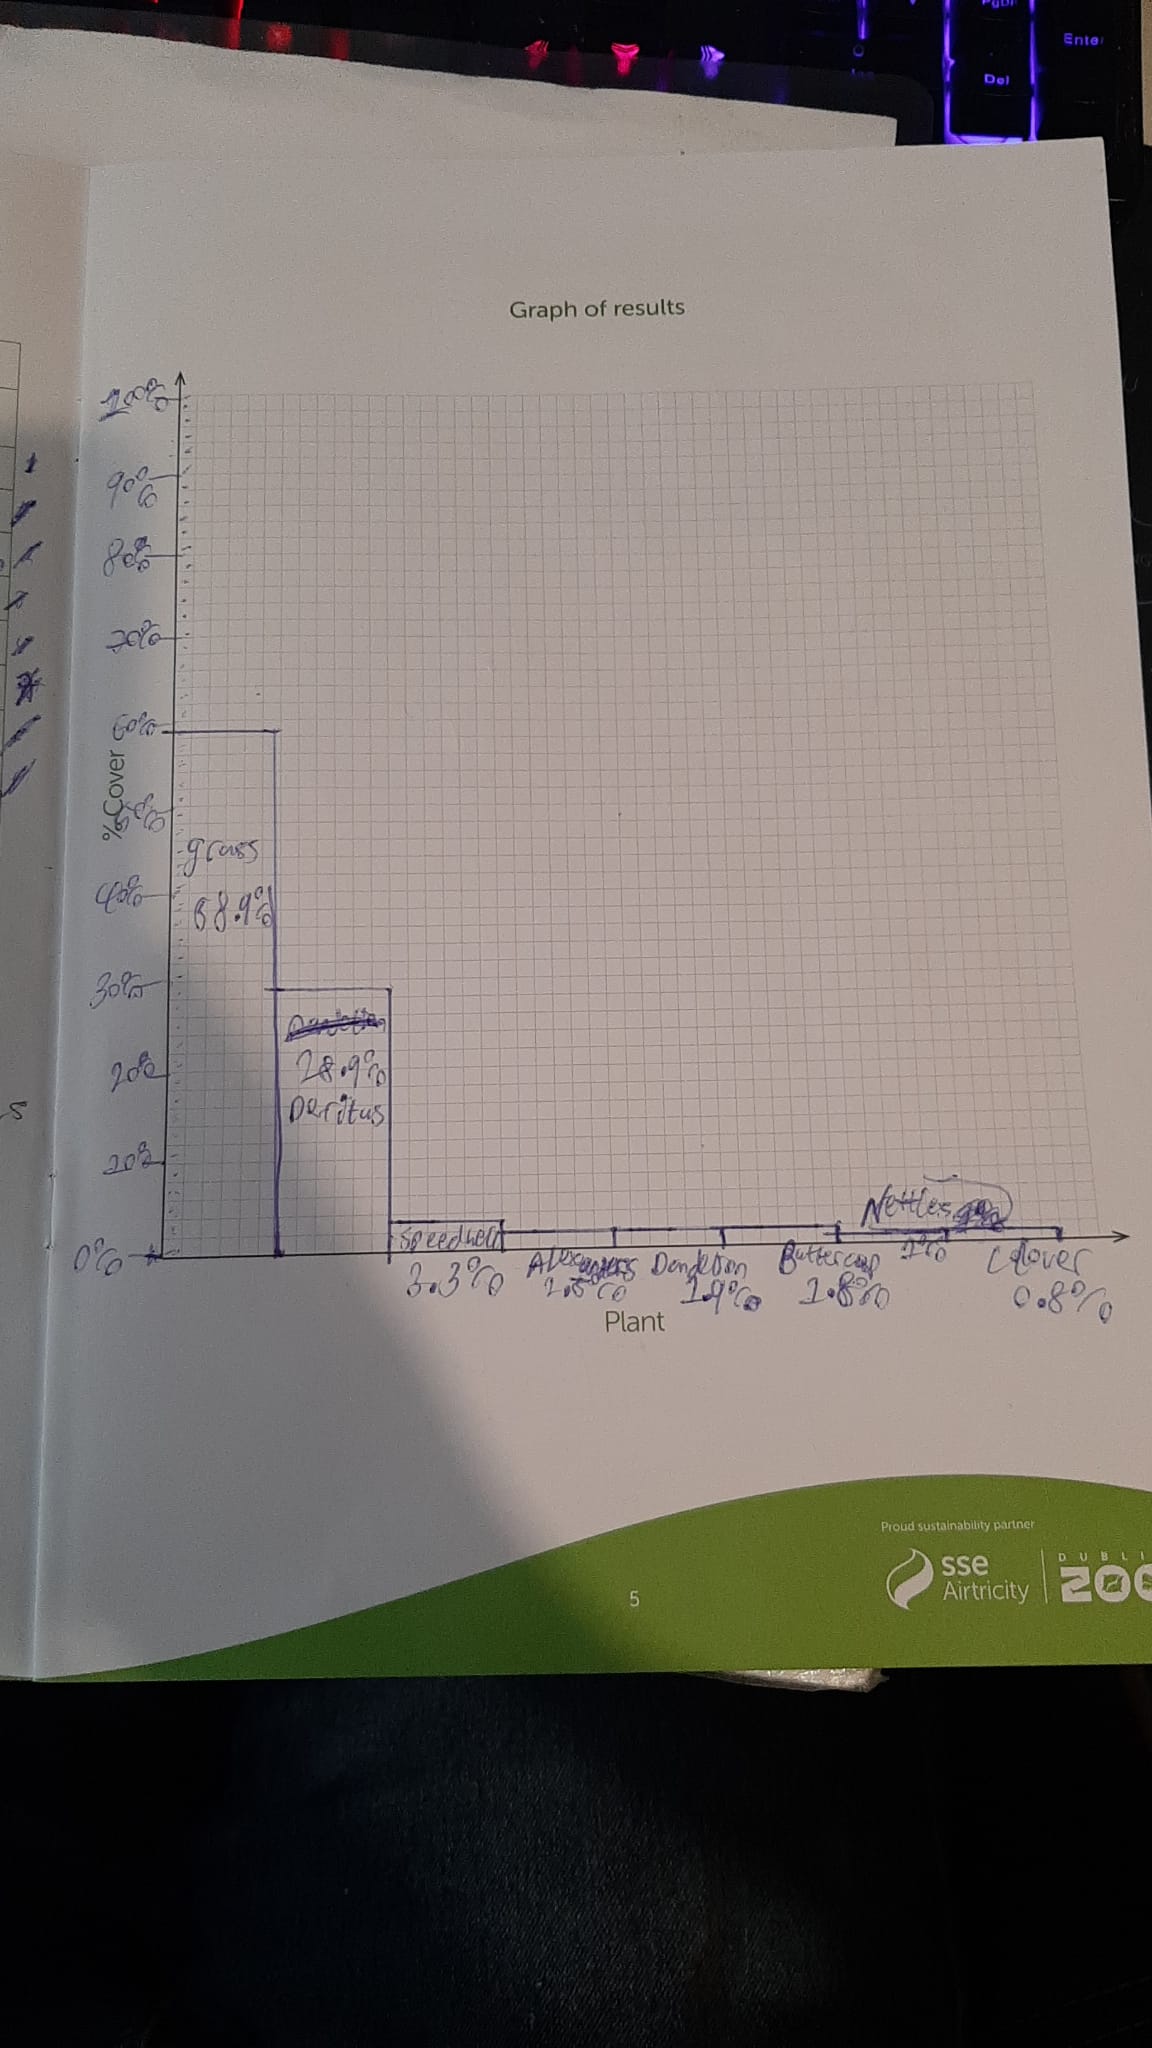 PgDn
Enter
Del
Graph of results
100%
90%
80%
70%
60%
50%
40%
30%
20%
10%
0%
% Cover
grass
58.9%
28.9%
Deritus
Speedwell
3.3%
Dandelion
1.9%
Buttercup
1.8%
Nettles
1%
Clover
0.8%
Plant
Proud sustainability partner
sse
Airtricity
DUBLI
ZOO
5